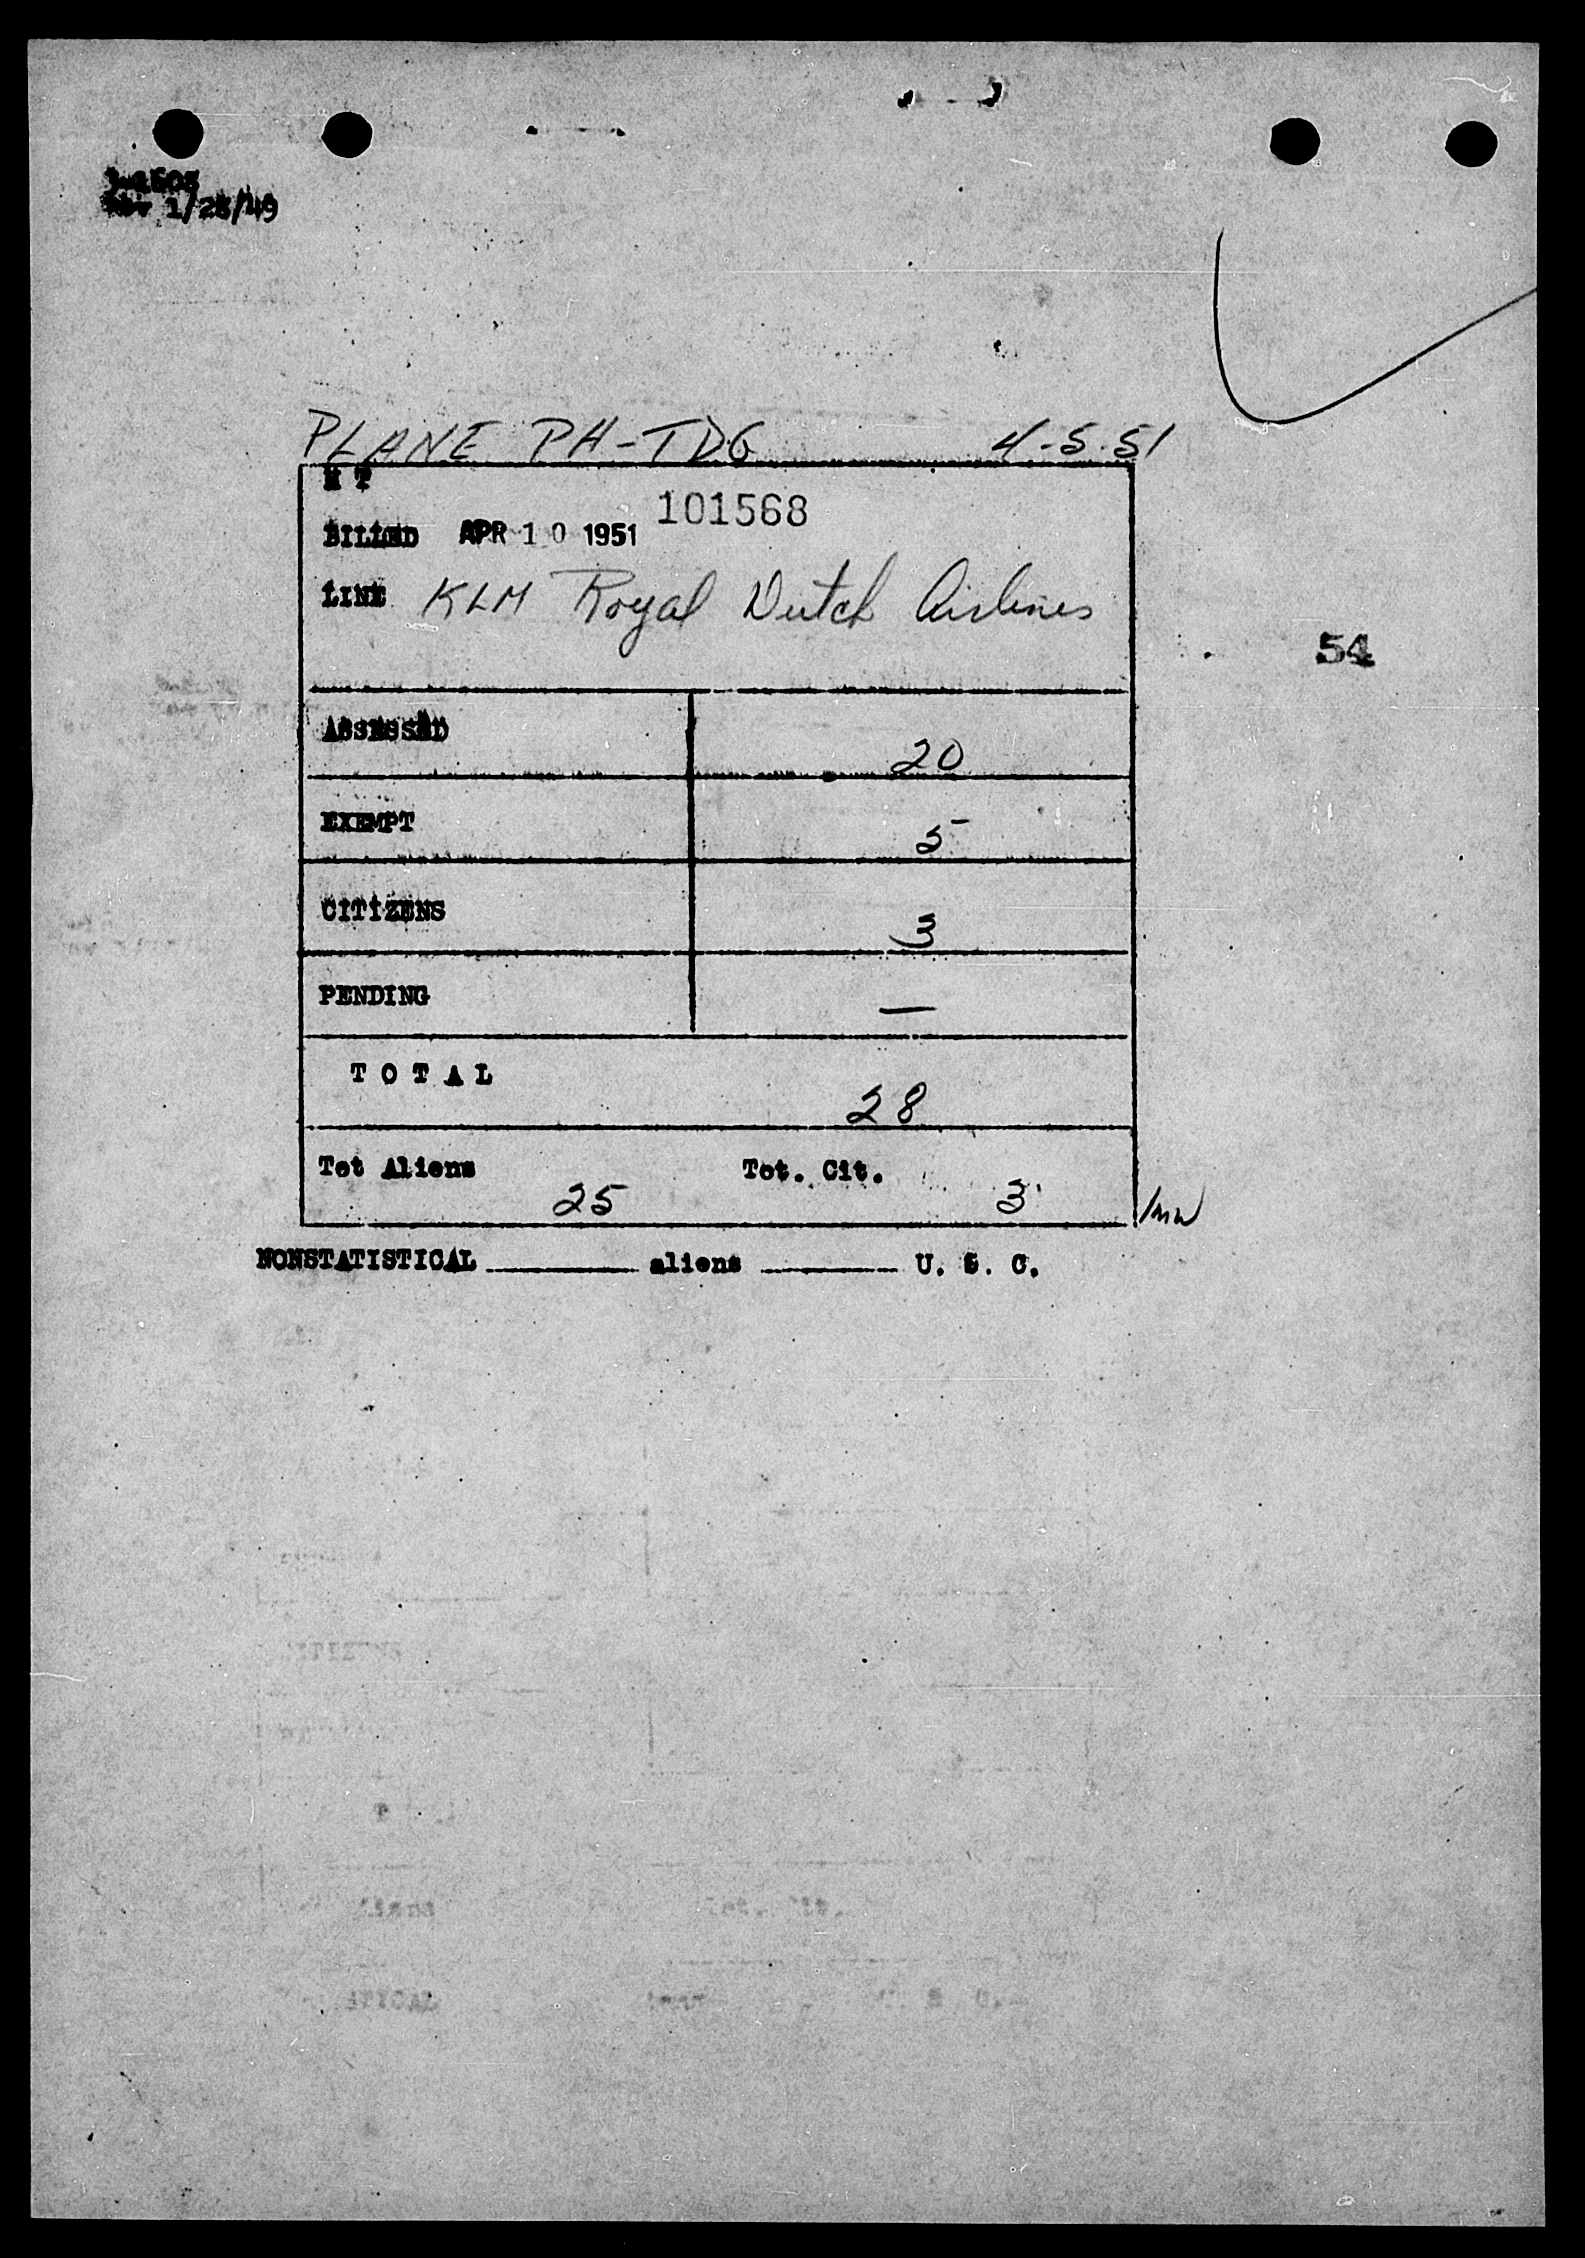 1/28/49
PLANE PH-TDG 4-5-51
H T
BILLED APR 10 1951 101568
LINE KLM Royal Dutch Airlines
54
ASSESSED 20
EXEMPT 5
CITIZENS 3
PENDING —
TOTAL 28
Tot Aliens 25 Tot. Cit. 3
NONSTATISTICAL ________ aliens ________ U. S. C.